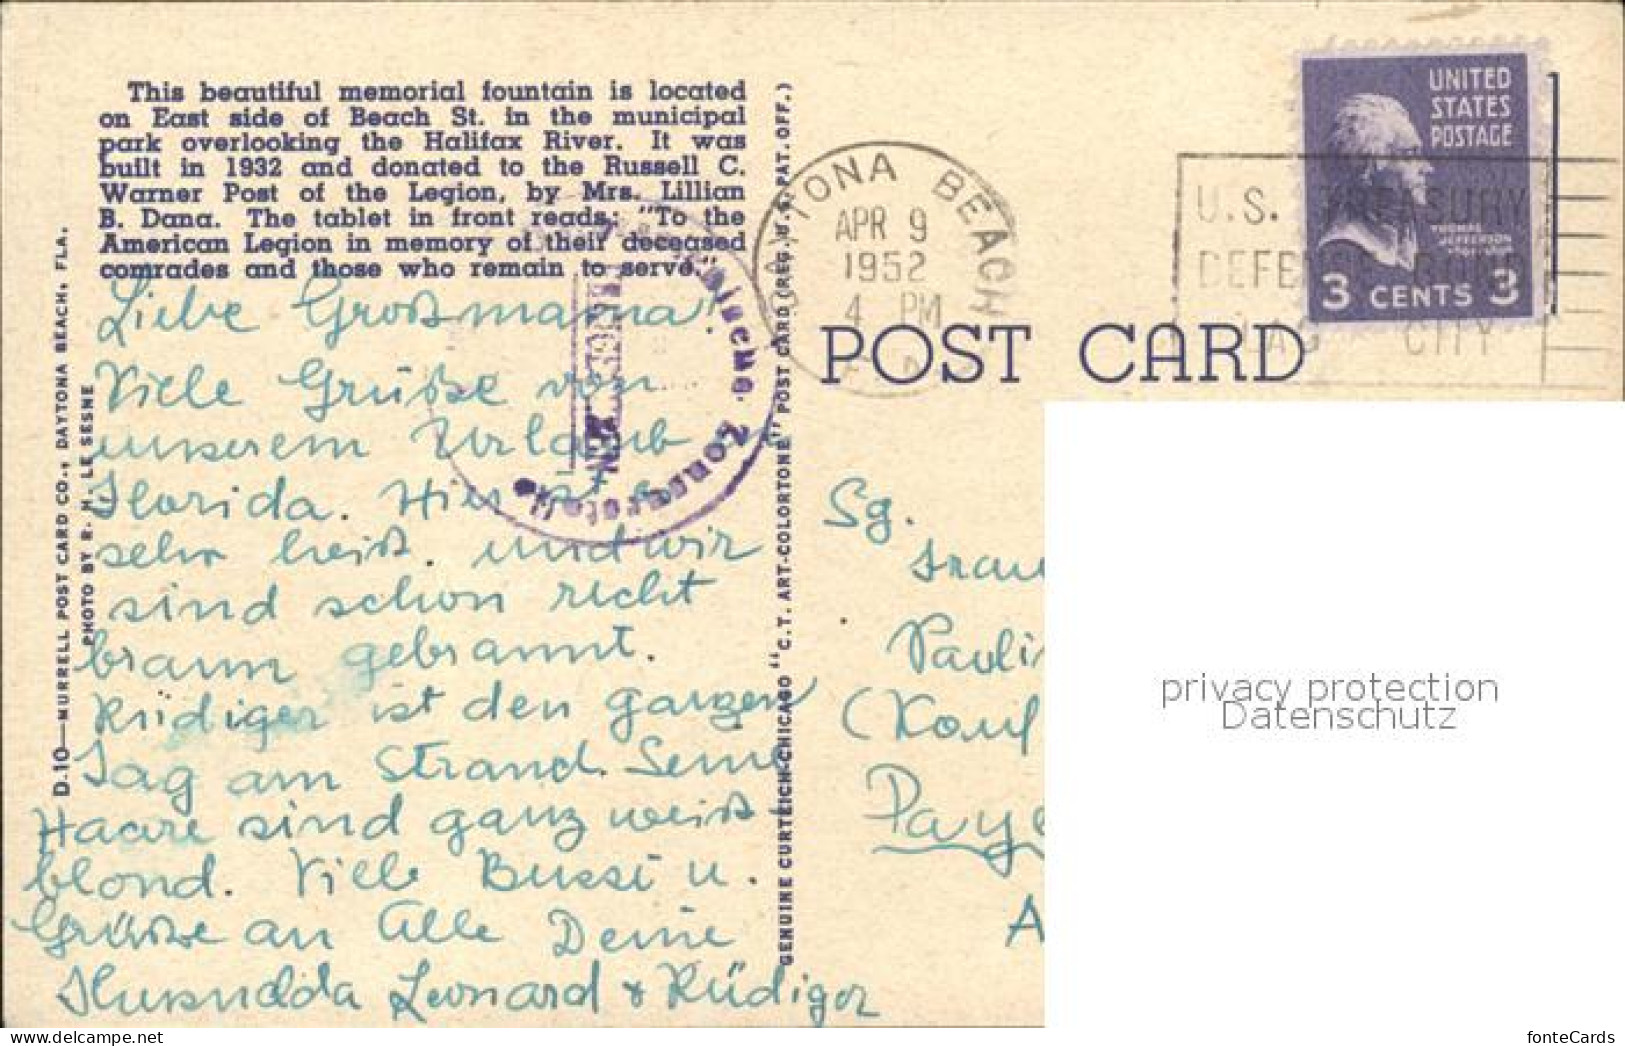 This beautiful memorial fountain is located
on East side of Beach St. in the municipal
park overlooking the Halifax River. It was
built in 1932 and donated to the Russell C.
Warner Post of the Legion, by Mrs. Lillian
B. Dana. The tablet in front reads: "To the
American Legion in memory of their deceased
comrades and those who remain to serve."
Liebe Großmama!
Viele Grüße von
unserem Urlaub
Florida. Hier ist es
sehr heiß. und wir
sind schon recht
braun gebrannt.
Rüdiger ist den ganzen
Tag am Strand. Seine
Haare sind ganz weiß
blond. Viele Bussi u.
Grüße an Alle Deine
Leonard & Rüdiger
D-10—MURRELL POST CARD CO., DAYTONA BEACH, FLA.
PHOTO BY R. H. LE SESNE
GENUINE CURTEICH-CHICAGO "C.T. ART-COLORTONE" POST CARD (REG. U.S. PAT. OFF.)
DAYTONA BEACH
APR 9
1952
4 PM
U.S. TREASURY
DEFENSE BOND
FLAG CITY
UNITED
STATES
POSTAGE
THOMAS
JEFFERSON
3 CENTS 3
Zensurstelle
POST CARD
Sg.
Frau
Pauli
(Kauf
Paye
A
privacy protection
Datenschutz
fonteCards